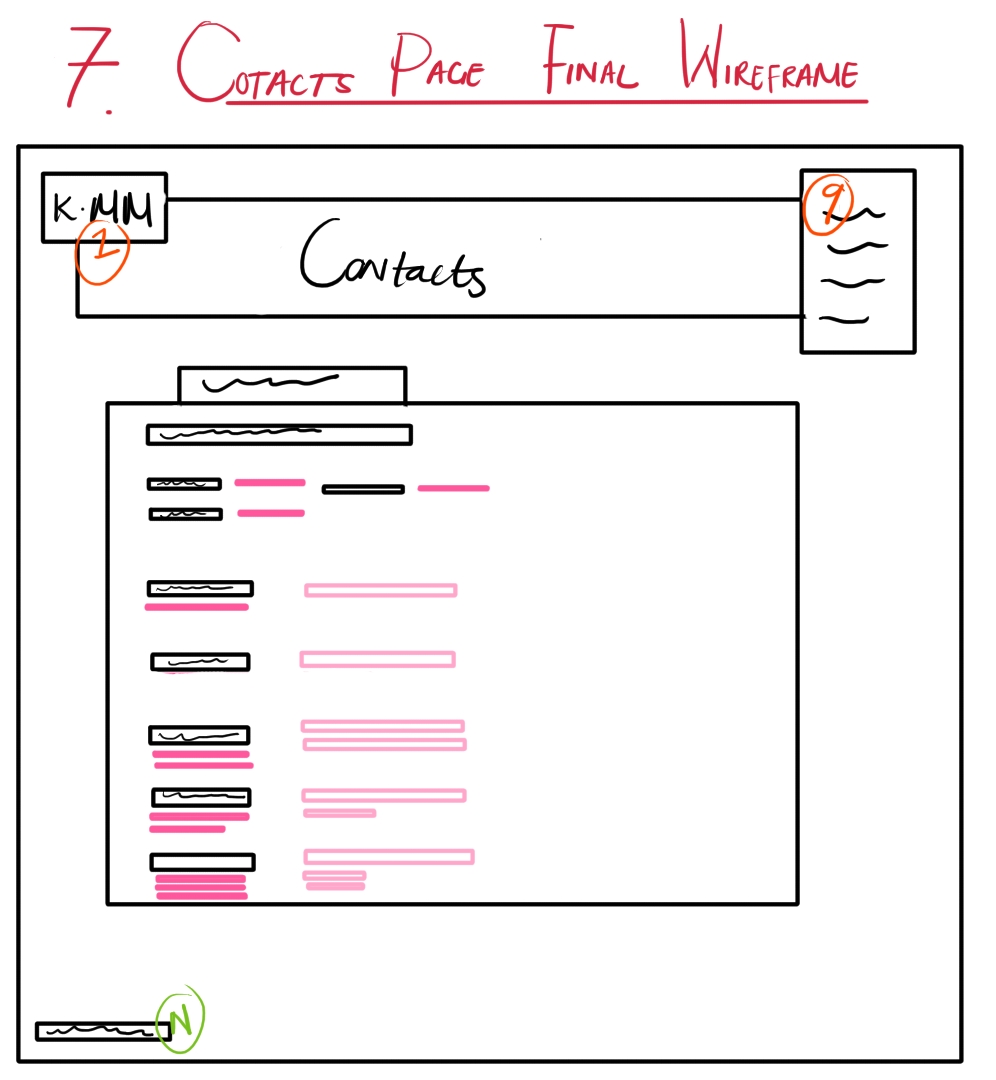 7. COTACTS PAGE FINAL WIREFRAME
K.MM
9
1
Contacts
N